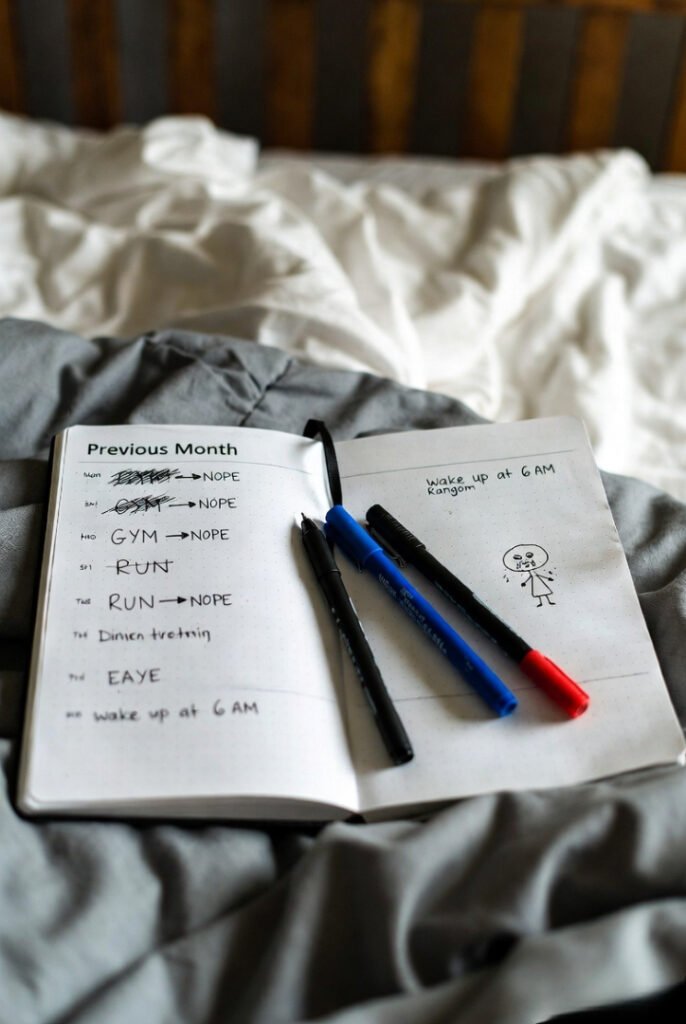 Previous Month
→ NOPE
GYM → NOPE
GYM → NOPE
RUN
RUN → NOPE
EAYE
wake up at 6 AM
wake up at 6 AM
Rangom